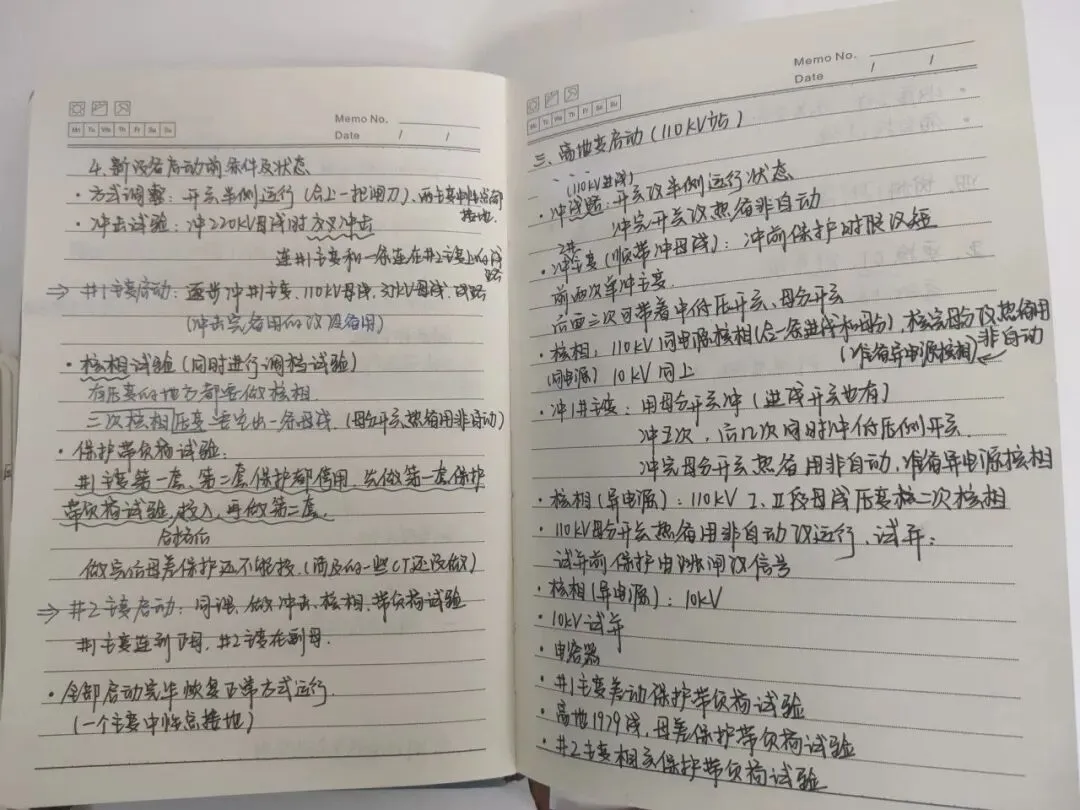 Memo No.
Date / /
Mo Tu We Th Fr Sa Su
4. 新设备启动前条件及状态
· 方式调整：开关半侧运行（合上一把闸刀）、两主变中性点都接地.
· 冲击试验：冲220kV母线时双冲击
连#1主变和一条连在#1主变上的线路
⇒ #1主变启动：逐步冲#1主变、110kV母线、35kV母线、线路
（冲击完备用的改没备用）
· 核相试验（同时进行调档试验）
有压变的地方都要做核相
二次核相压变要空出一条母线.（母分开关热备用非自动）
· 保护带负荷试验：
#1主变第一套、第二套保护都停用，先做第一套保护
带负荷试验，投入，再做第二套.
合格后
做完后母差保护还不能投.（涉及的一些CT还没做）
⇒ #2主变启动：同理，做冲击、核相、带负荷试验
#1主变连到正母，#2主变在副母.
· 全部启动完毕恢复正常方式运行.
（一个主变中性点接地）
Memo No.
Date / /
Mo Tu We Th Fr Sa Su
三、高地变启动（110kV站）
（110kV进线）
· 冲线路：开关改半侧运行状态
冲完开关改热备非自动
2#
· 冲主变（顺带冲母线）：冲前保护时限改短
前两次单冲主变.
后面三次可带着中低压开关、母分开关
· 核相：110kV同电源核相（合一条进线和母分），核完母分改热备用非自动
（同电源） 10kV同上 （准备异电源核相）
· 冲1#主变：用母分开关冲（进线开关也有）
冲五次，后几次同时冲低压侧开关.
冲完母分开关热备用非自动，准备异电源核相
· 核相（异电源）：110kV I、II段母线压变核二次核相
· 110kV母分开关热备用非自动改运行、试并：
试并前保护由跳闸改信号
· 核相（异电源）：10kV
· 10kV试并
· 电容器
· #1主变差动保护带负荷试验
· 高地1979线，母差保护带负荷试验
· #2主变相关保护带负荷试验